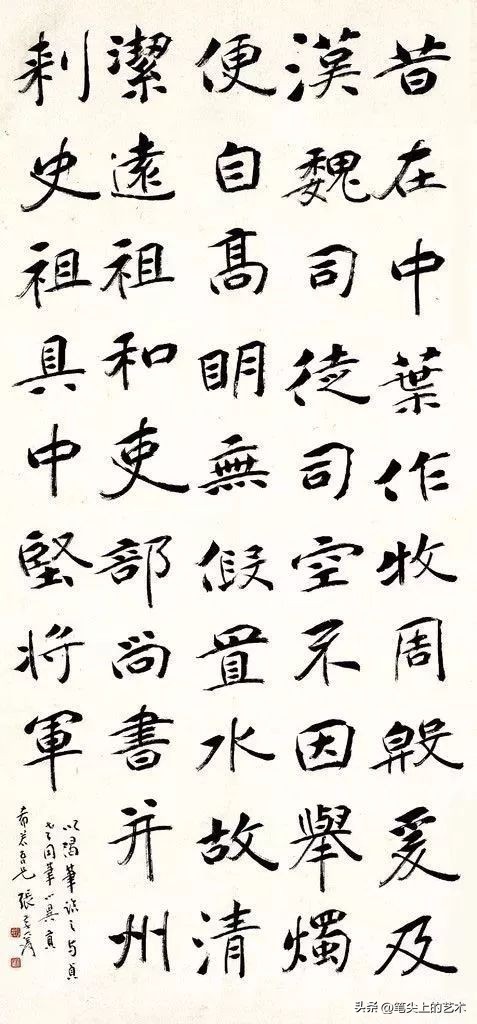 昔在中葉作牧周殷爰及
漢魏司徒司空不因舉燭
便自髙眀無假置水故清
潔遠祖和吏部尚書并州
刺史祖具中堅將軍
以渴筆臨之与
同筆
張
头条 @笔尖上的艺术